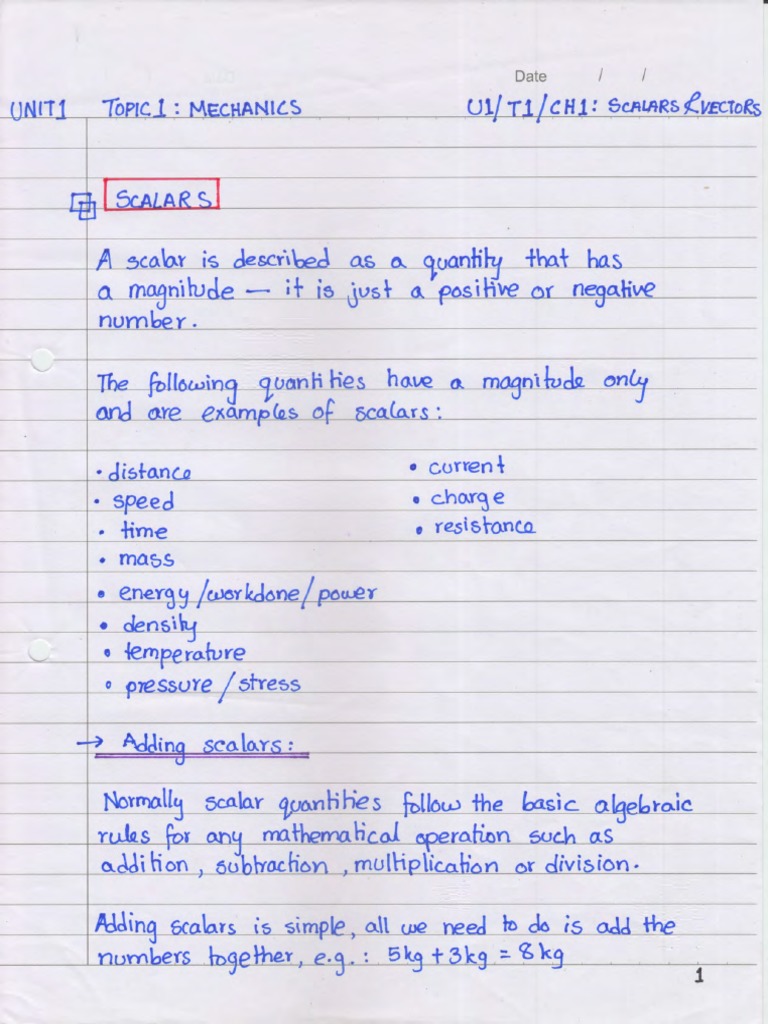 Date / /
UNIT1 TOPIC1: MECHANICS U1/T1/CH1: SCALARS & VECTORS
SCALARS
A scalar is described as a quantity that has
a magnitude — it is just a positive or negative
number.
The following quantities have a magnitude only
and are examples of scalars:
• distance
• speed
• time
• mass
• energy/workdone/power
• density
• temperature
• pressure/stress
• current
• charge
• resistance
→ Adding scalars:
Normally scalar quantities follow the basic algebraic
rules for any mathematical operation such as
addition, subtraction, multiplication or division.
Adding scalars is simple, all we need to do is add the
numbers together, e.g.: 5kg + 3kg = 8kg
1